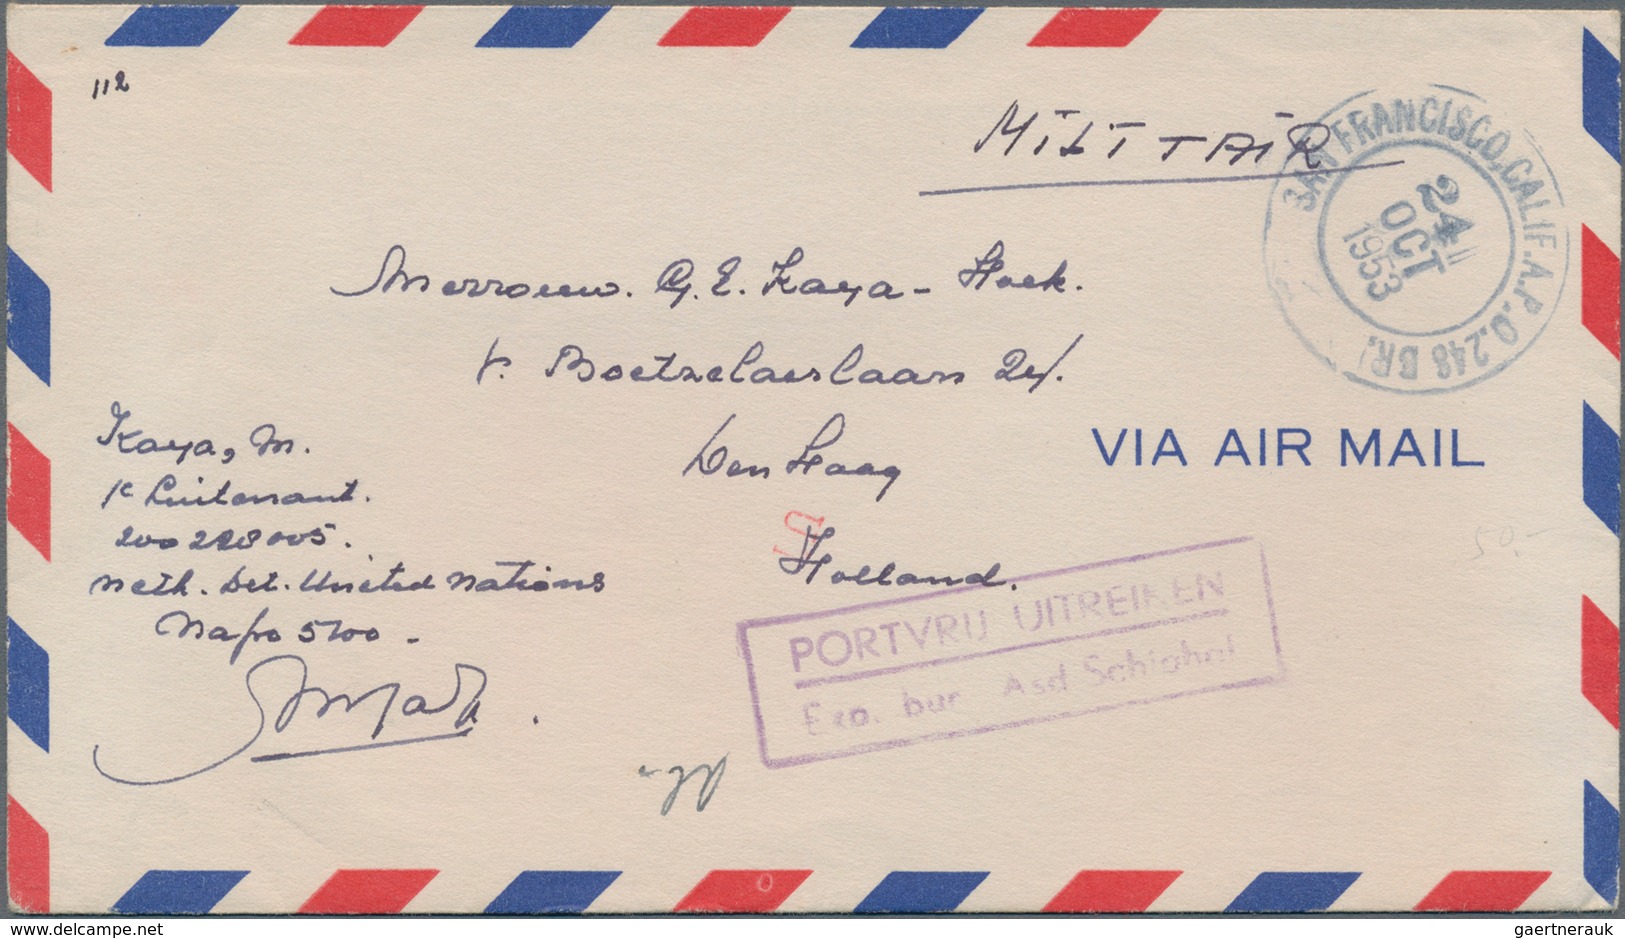 112
MILITAIR
SAN FRANCISCO, CALIF. A.P.O. 248 BR.
24
OCT
1953
Mevrouw. G. E. Kaya - Hoek.
v. Boetzelaerlaan 24.
Den Haag
Holland.
VIA AIR MAIL
Kaya, M.
1e Luitenant.
200228005.
Neth. Det. United Nations
Napo 5700 -
50.-
PORTVRIJ UITREIKEN
Exp. bur. Asd Schiphol
delcampe.net
gaertnerauk